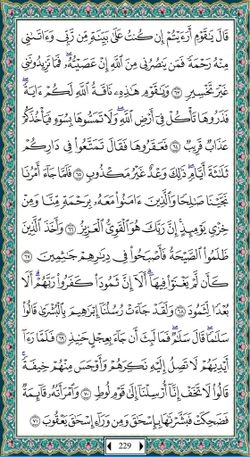 قَالَ يَـٰقَوْمِ أَرَءَيْتُمْ إِن كُنتُ عَلَىٰ بَيِّنَةٍ مِّن رَّبِّى وَءَاتَىٰنِى
مِنْهُ رَحْمَةً فَمَن يَنصُرُنِى مِنَ ٱللَّهِ إِنْ عَصَيْتُهُۥ ۖ فَمَا تَزِيدُونَنِى
غَيْرَ تَخْسِيرٍ ﴿٦٣﴾ وَيَـٰقَوْمِ هَـٰذِهِۦ نَاقَةُ ٱللَّهِ لَكُمْ ءَايَةً
فَذَرُوهَا تَأْكُلْ فِىٓ أَرْضِ ٱللَّهِ ۖ وَلَا تَمَسُّوهَا بِسُوٓءٍ فَيَأْخُذَكُمْ
عَذَابٌ قَرِيبٌ ﴿٦٤﴾ فَعَقَرُوهَا فَقَالَ تَمَتَّعُوا۟ فِى دَارِكُمْ
ثَلَـٰثَةَ أَيَّامٍ ۖ ذَٰلِكَ وَعْدٌ غَيْرُ مَكْذُوبٍ ﴿٦٥﴾ فَلَمَّا جَآءَ أَمْرُنَا
نَجَّيْنَا صَـٰلِحًا وَٱلَّذِينَ ءَامَنُوا۟ مَعَهُۥ بِرَحْمَةٍ مِّنَّا وَمِنْ
خِزْىِ يَوْمِئِذٍ ۗ إِنَّ رَبَّكَ هُوَ ٱلْقَوِىُّ ٱلْعَزِيزُ ﴿٦٦﴾ وَأَخَذَ ٱلَّذِينَ
ظَلَمُوا۟ ٱلصَّيْحَةُ فَأَصْبَحُوا۟ فِى دِيَـٰرِهِمْ جَـٰثِمِينَ ﴿٦٧﴾
كَأَن لَّمْ يَغْنَوْا۟ فِيهَآ ۗ أَلَآ إِنَّ ثَمُودَا۟ كَفَرُوا۟ رَبَّهُمْ ۗ أَلَا
بُعْدًا لِّثَمُودَ ﴿٦٨﴾ وَلَقَدْ جَآءَتْ رُسُلُنَآ إِبْرَٰهِيمَ بِٱلْبُشْرَىٰ قَالُوا۟
سَلَـٰمًا ۖ قَالَ سَلَـٰمٌ ۖ فَمَا لَبِثَ أَن جَآءَ بِعِجْلٍ حَنِيذٍ ﴿٦٩﴾ فَلَمَّا رَءَآ
أَيْدِيَهُمْ لَا تَصِلُ إِلَيْهِ نَكِرَهُمْ وَأَوْجَسَ مِنْهُمْ خِيفَةً ۚ
قَالُوا۟ لَا تَخَفْ إِنَّآ أُرْسِلْنَآ إِلَىٰ قَوْمِ لُوطٍ ﴿٧٠﴾ وَٱمْرَأَتُهُۥ قَآئِمَةٌ
فَضَحِكَتْ فَبَشَّرْنَـٰهَا بِإِسْحَـٰقَ وَمِن وَرَآءِ إِسْحَـٰقَ يَعْقُوبَ ﴿٧١﴾
229